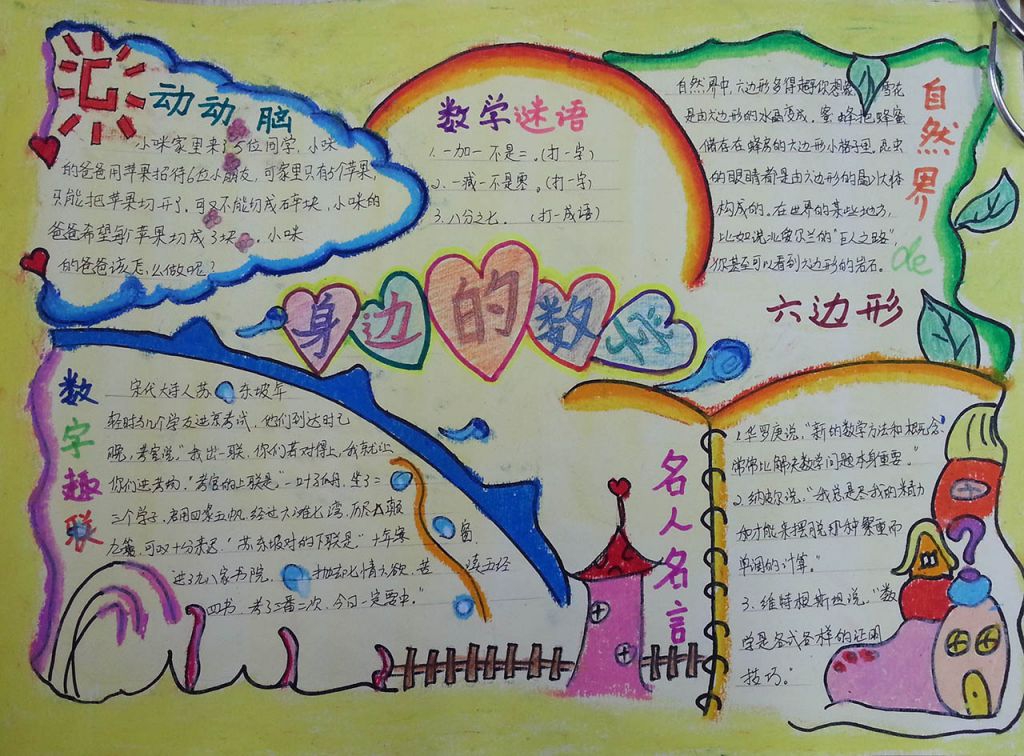 动动脑
小咪家里来了5位同学，小咪
的爸爸用苹果招待6位小朋友，可家里只有5个苹果，
只能把苹果切开了，可又不能切成碎块，小咪的
爸爸希望每个苹果切成3块。小咪
的爸爸该怎么做呢？
数学谜语
1.一加一不是二。(打一字)
2.一减一不是零。(打一字)
3.八分之七. (打一成语)
自然界de
六边形
自然界中，六边形多得超乎你想象 雪花
是由六边形的水晶变成，蜜蜂把蜂蜜
储存在蜂房的六边形小格子里。昆虫
的眼睛都是由六边形的晶状体
构成的。在世界的某些地方，
比如说北爱尔兰的“巨人之路”
你甚至可以看到六边形的岩石。
身边的数学
数字趣联
宋代大诗人苏东坡年
轻时与几个学友进京考试，他们到达时已
晚，考官说“我出一联，你们若对得上，我就让
你们进考场，”考官的上联是“一叶孤舟，坐了二
三个学子，启用四桨五帆，经过六滩七湾，历尽八颠
九簸，可叹十分来迟。”苏东坡对的下联是“十年寒窗
进了九八家书院，抛却七情六欲，苦读五经
四书，考了三番二次，今日一定要中。”
名人名言
1.华罗庚说，“新的数学方法和概念
常常比解决数学问题本身重要。”
2.纳皮尔说，“我总是尽我的精力
和才能来摆脱那种繁重而
单调的计算。”
3.维特根斯坦说，“数
学是各式各样的证明
技巧。”